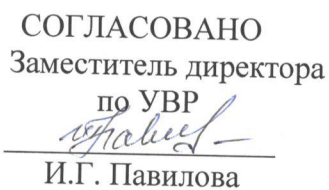 СОГЛАСОВАНО
Заместитель директора
по УВР
И.Г. Павилова